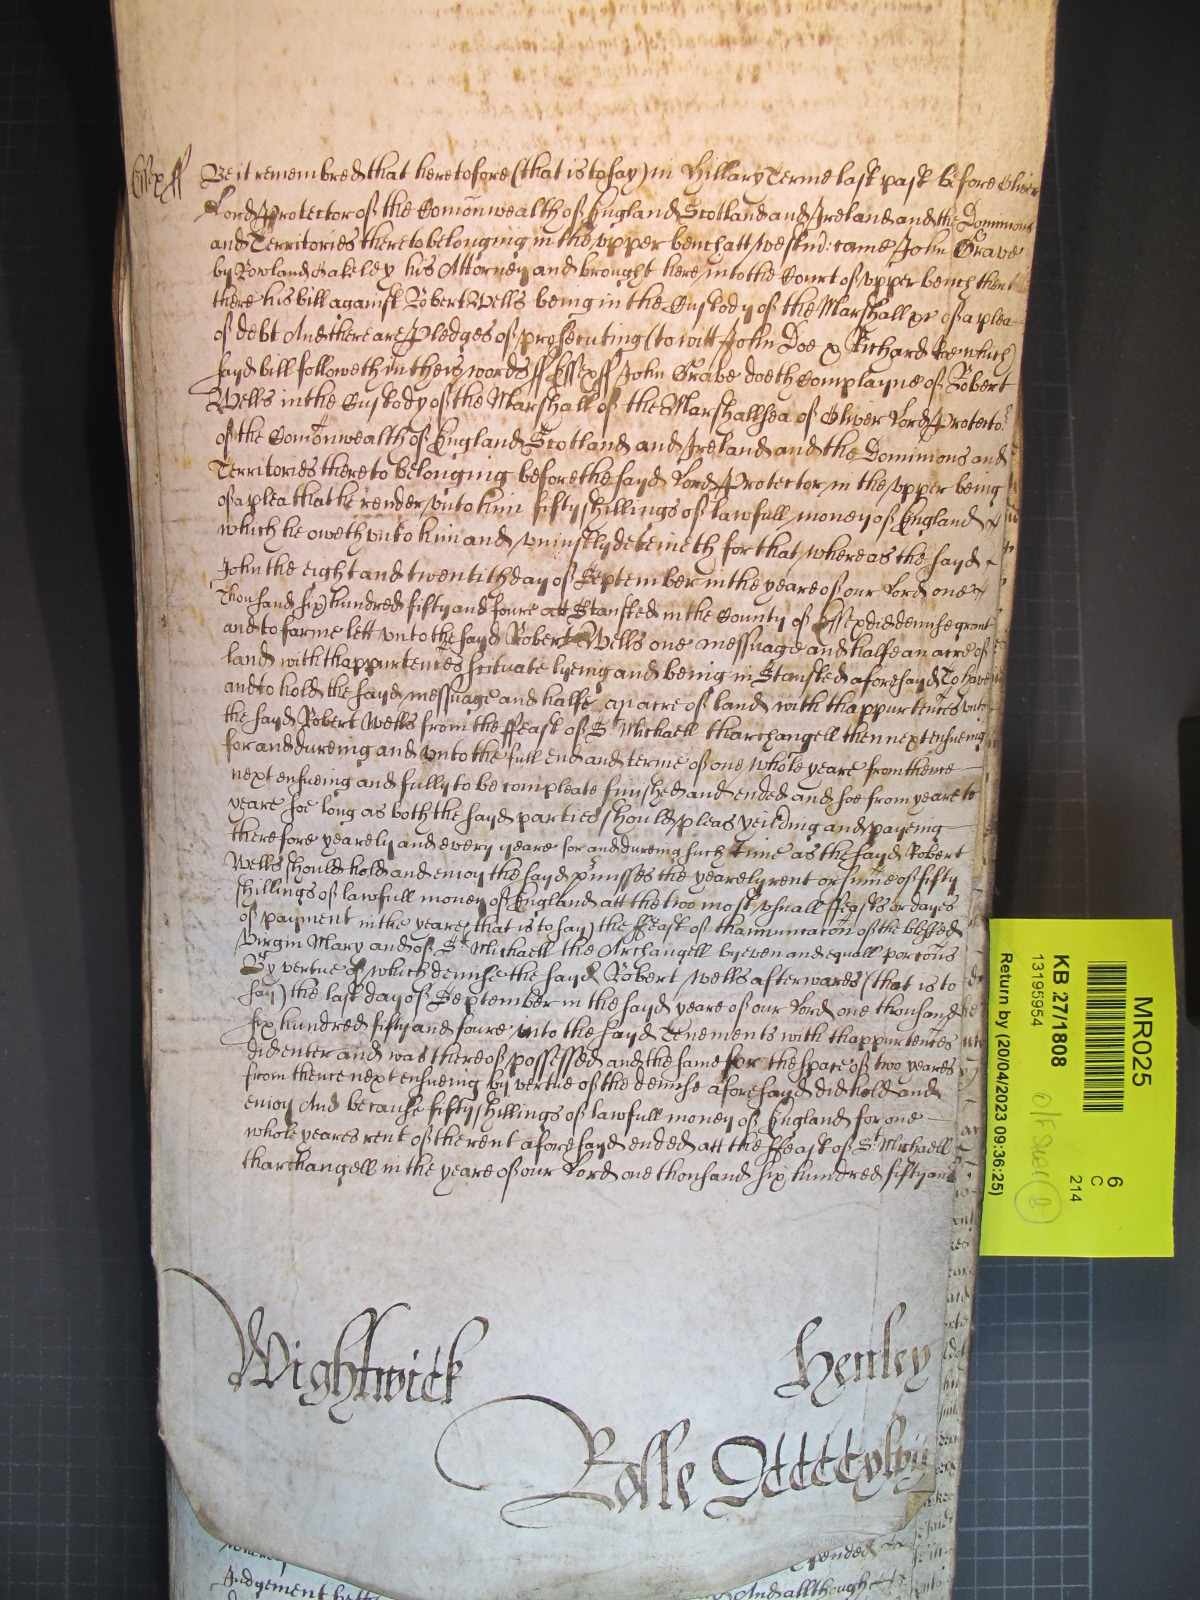 Essex ss Be it remembred that heretofore (that is to say) in Hillary Terme last past before Oliver
Lord Protector of the Comonwealth of England Scotland and Ireland and the Dominions
and Territories thereto belonging in the upper bench att Westmr: came John Grave
by Rowland Hakeley his Attorney and brought here into the Court of upper bench then
there his bill against Robert Wells being in the Custody of the Marshall &c of a plea
of debt And there are Pledges of prosecuting (to witt John Doe & Richard Roe which
sayd bill followeth in theis words ss Essex ss John Grave doeth Complayne of Robert
Wells in the Custody of the Marshall of the Marshallsea of Oliver Lord Protector
of the Comonwealth of England Scotland and Ireland and the Dominions and
Territories thereto belonging before the sayd Lord Protector in the upper being
of a plea that he render unto him fifty shillings of lawfull money of England
which he oweth unto him and uniustly deteineth for that whereas the sayd
John the eight and twentith day of September in the yeare of our Lord one
thousand six hundred fifty and foure att Stansted in the County of Essex did demise grant
and to farme lett unto the sayd Robert Wells one messuage and halfe an acre of
land with thappurtences scituate lyeing and being in Stansted aforesayd To have
and to hold the sayd messuage and halfe an acre of land with thappurtences unto
the sayd Robert Wells from the ffeast of St Michaell tharchangell then next ensueing
for and dureing and unto the full end and terme of one whole yeare from thence
next ensueing and fully to be compleate finished and ended and soe from yeare to
yeare soe long as both the sayd parties should pleas yeilding and payeing
therefore yearely and every yeare for and dureing such time as the sayd Robert
Wells should hold and enioy the sayd pmisses the yearely rent or sume of fifty
shillings of lawfull money of England att the two most usuall ffeasts or dayes
of payment in the yeare (that is to say) the ffeast of thannunciacon of the blessed
Virgin Mary and of St Michaell the Archangell by even and equall porcons
By vertue of which demise the sayd Robert Wells afterwards (that is to
say) the last day of September in the sayd yeare of our Lord one thousand
six hundred fifty and foure into the sayd Tenements with thappurtences
did enter and was thereof possessed and the same for the space of two yeares
from thence next ensueing by vertue of the demise aforesayd did hold and
enioy And because fifty shillings of lawfull money of England for one
whole yeares rent of the rent aforesayd ended att the ffeast of St Michaell
tharchangell in the yeare of our Lord one thousand six hundred fifty and
Wightwick Henley
Rolle
Judgement
pended
And allthough
MR025
6
C
214
KB 27/1808
13195954
Return by (20/04/2023 09:36:25)